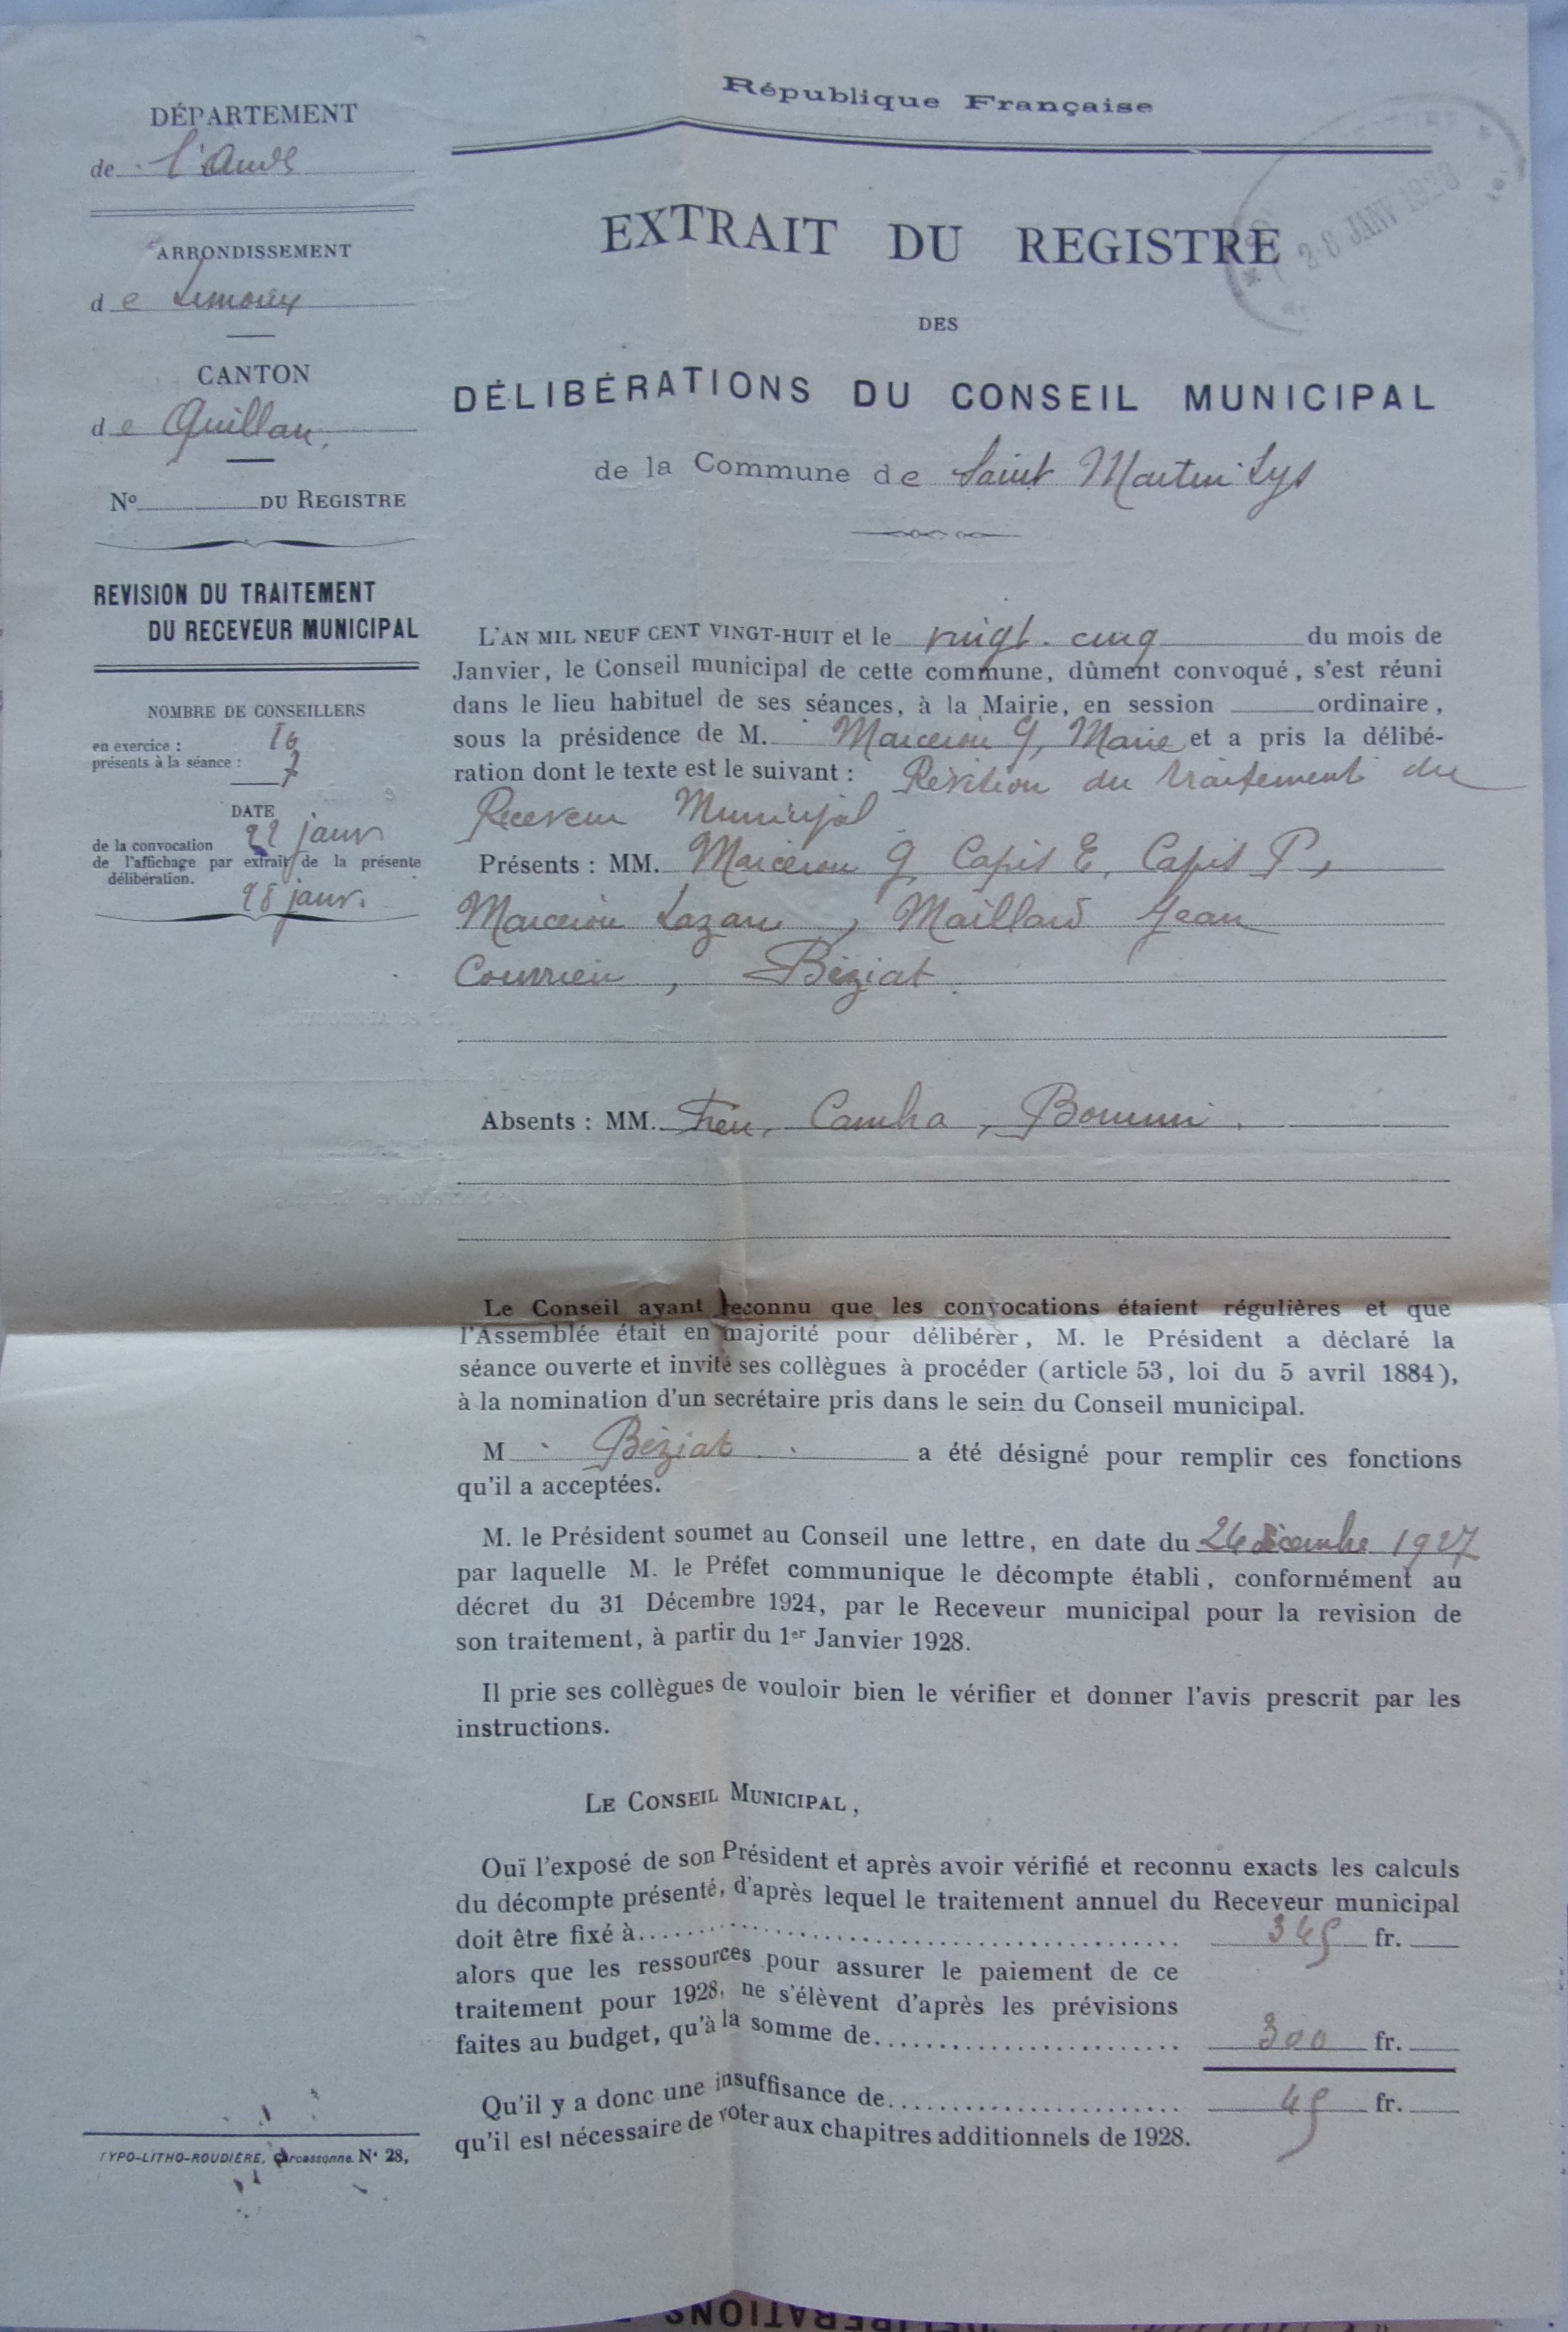 République Française
DÉPARTEMENT
de l'Aude
ARRONDISSEMENT
de Limoux
CANTON
de Quillan
N° DU REGISTRE
REVISION DU TRAITEMENT
DU RECEVEUR MUNICIPAL
NOMBRE DE CONSEILLERS
en exercice : 10
présents à la séance : 7
DATE
de la convocation 22 janv
de l'affichage par extrait de la présente
délibération.
28 janv.
TYPO-LITHO-ROUDIÈRE, Carcassonne. N° 28,
28 JANV 1928
EXTRAIT DU REGISTRE
DES
DÉLIBÉRATIONS DU CONSEIL MUNICIPAL
de la Commune de Saint Martin Lys
L'AN MIL NEUF CENT VINGT-HUIT et le vingt-cinq du mois de
Janvier, le Conseil municipal de cette commune, dûment convoqué, s'est réuni
dans le lieu habituel de ses séances, à la Mairie, en session ordinaire,
sous la présidence de M. Marcerou G, Maire et a pris la délibé-
ration dont le texte est le suivant : Révision du traitement du
Receveur Municipal
Présents : MM. Marcerou G, Capis E, Capis P,
Marcerou Lazare, Maillard Jean
Courrieu, Béziat.
Absents : MM.
Le Conseil ayant reconnu que les convocations étaient régulières et que
l'Assemblée était en majorité pour délibérer, M. le Président a déclaré la
séance ouverte et invité ses collègues à procéder (article 53, loi du 5 avril 1884),
à la nomination d'un secrétaire pris dans le sein du Conseil municipal.
M Béziat a été désigné pour remplir ces fonctions
qu'il a acceptées.
M. le Président soumet au Conseil une lettre, en date du 26 décembre 1927
par laquelle M. le Préfet communique le décompte établi, conformément au
décret du 31 Décembre 1924, par le Receveur municipal pour la revision de
son traitement, à partir du 1er Janvier 1928.
Il prie ses collègues de vouloir bien le vérifier et donner l'avis prescrit par les
instructions.
LE CONSEIL MUNICIPAL,
Ouï l'exposé de son Président et après avoir vérifié et reconnu exacts les calculs
du décompte présenté, d'après lequel le traitement annuel du Receveur municipal
doit être fixé à........ 345 fr.
alors que les ressources pour assurer le paiement de ce
traitement pour 1928, ne s'élèvent d'après les prévisions
faites au budget, qu'à la somme de........ 300 fr.
Qu'il y a donc une insuffisance de........ 45 fr.
qu'il est nécessaire de voter aux chapitres additionnels de 1928.